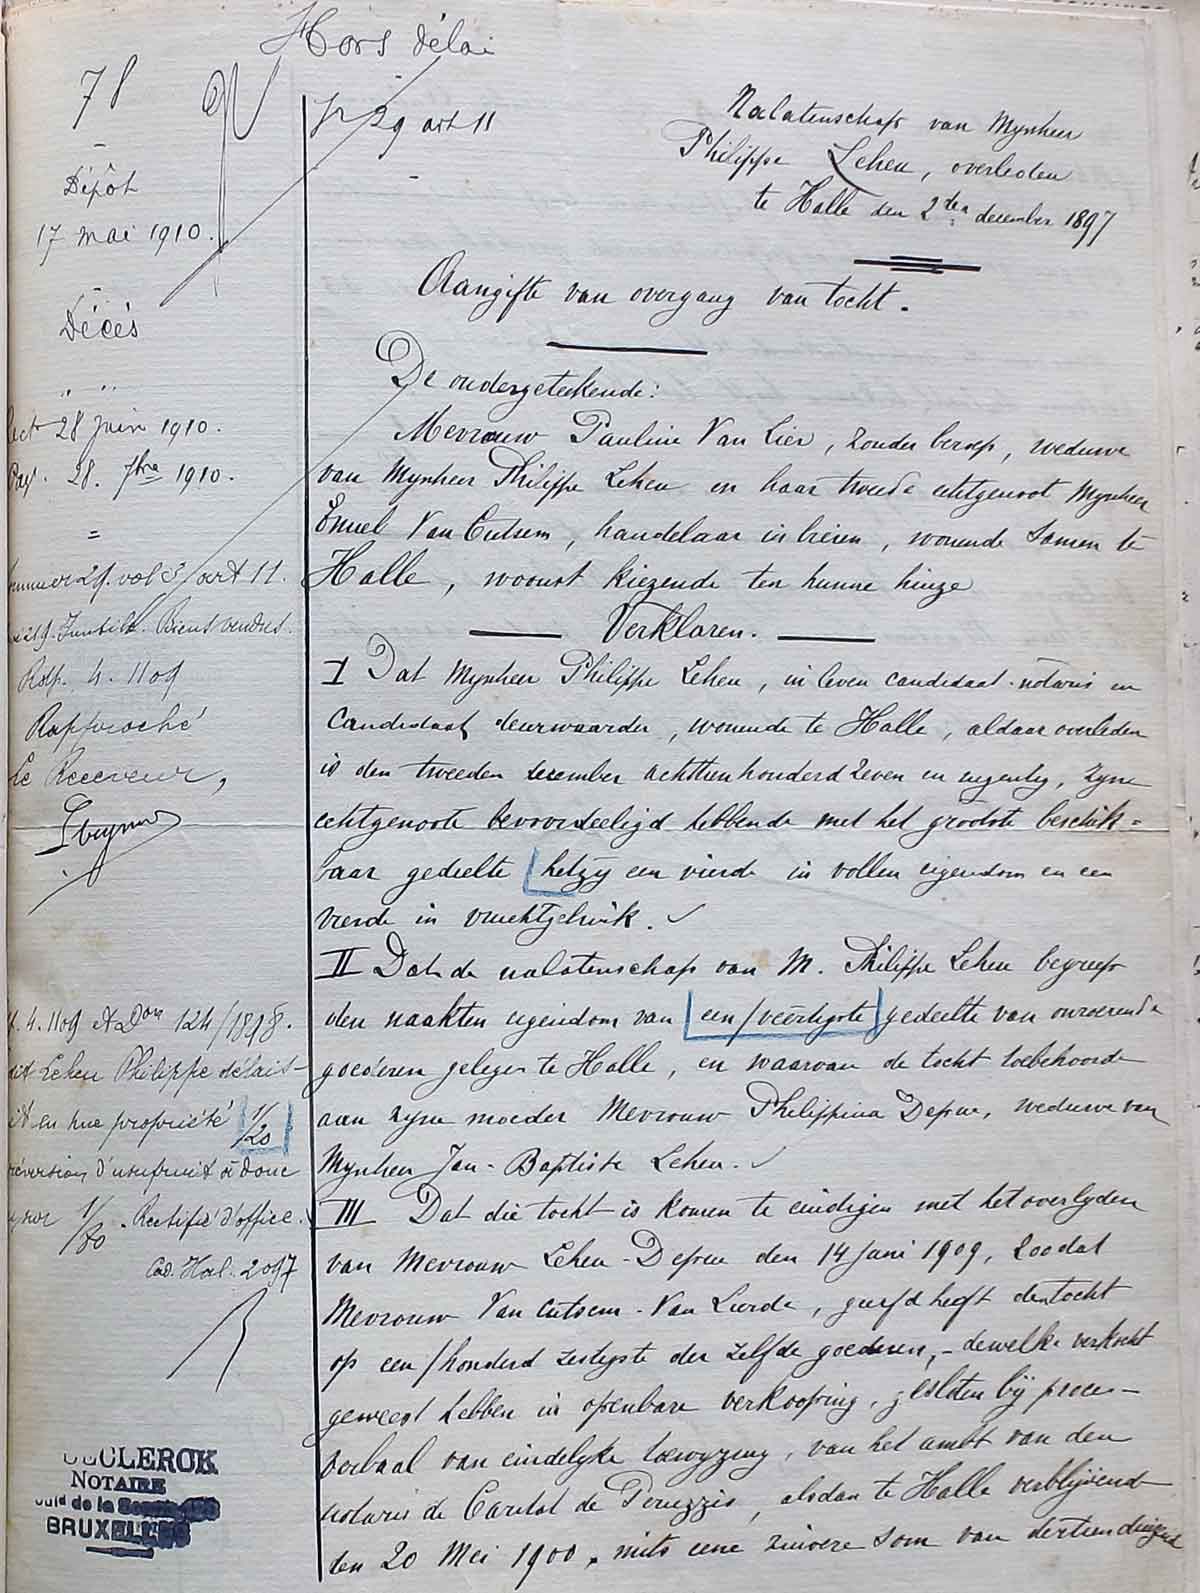 Hors délai
78
n° 29 art 11
Nalatenschap van Mynheer
Philippe Leheu, overleden
te Halle den 2den december 1897
Dépôt
17 mai 1910.
Aangifte van overgang van tocht.
Décès
De ondergeteekende:
28 juin 1910.
Mevrouw Pauline Van Lier, zonder beroep, weduwe
28. 7bre 1910.
van Mynheer Philippe Leheu en haar tweede echtgenoot Mynheer
Emiel Van Cutsem, handelaar in bieren, wonende samen te
29. vol 3 art 11.
Halle, woonst kiezende ten hunne huize
Biens vendus.
Verklaren.
4. 1109
I Dat Mynheer Philippe Leheu, in leven candidaat-notaris en
Rapproché
candidaat deurwaarder, wonende te Halle, aldaar overleden
Le Receveur,
is den tweeden december achttienhonderd zeven en negentig, zyne
echtgenoote bevoordeeligd hebbende met het grootste beschik=
baar gedeelte hetzy een vierde in vollen eigendom en een
vierde in vruchtgebruik.
II Dat de nalatenschap van M. Philippe Leheu begreep
4. 1109 et Don 124/1898.
den naakten eigendom van een/veertigste gedeelte van onroerende
Leheu Philippe délais-
goederen gelegen te Halle, en waarvan de tocht toebehoorde
en nue propriété 1/20
aan zyne moeder Mevrouw Philippina Depue, weduwe van
réversion d'usufruit a donc
Mynheer Jan-Baptiste Leheu.
sur 1/80. Rectifié d'office.
III Dat die tocht is komen te eindigen met het overlyden
2097
van Mevrouw Leheu-Depue den 14 Juni 1909, zoodat
Mevrouw Van Cutsem-Van Lierde, geerfd heeft den tocht
op een/honderd zestigste der zelfde goederen,- dewelke verkocht
geweest hebben in openbare verkooping, gesloten bij proces-
verbaal van eindelyke toewyzing, van het ambt van den
notaris de Caritat de Peruzzis, alsdan te Halle verblijvend
den 20 Mei 1900, mits eene zuivere som van dertienduizend
DECLERCK
NOTAIRE
BRUXELLES